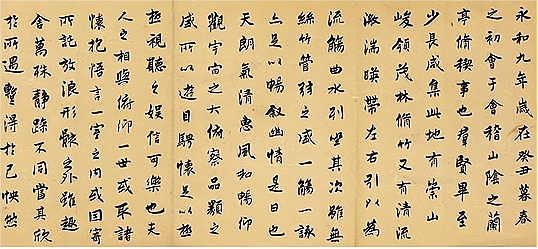 永和九年歲在癸丑暮春
之初會于會稽山陰之蘭
亭脩稧事也羣賢畢至
少長咸集此地有崇山
峻領茂林脩竹又有清流
激湍暎帶左右引以為
流觴曲水列坐其次雖無
絲竹管弦之盛一觴一詠
亦足以暢敘幽情是日也
天朗氣清惠風和暢仰
觀宇宙之大俯察品類之
盛所以遊目騁懷足以極
極視聽之娛信可樂也夫
人之相與俯仰一世或取諸
懷抱悟言一室之內或因寄
所託放浪形骸之外雖趣
舍萬殊靜躁不同當其欣
於所遇蹔得於己怏然